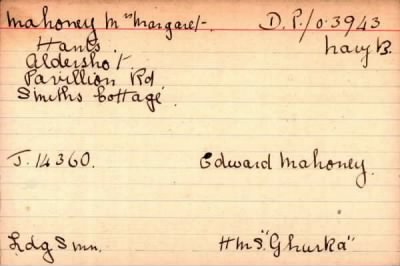 Mahoney Mrs Margaret. D.P./o.3943
Hants. Navy B.
Aldershot.
Pavillion Rd
Smiths Cottage.
J.14360. Edward Mahoney.
Ldg Smn. HMS "Ghurka"